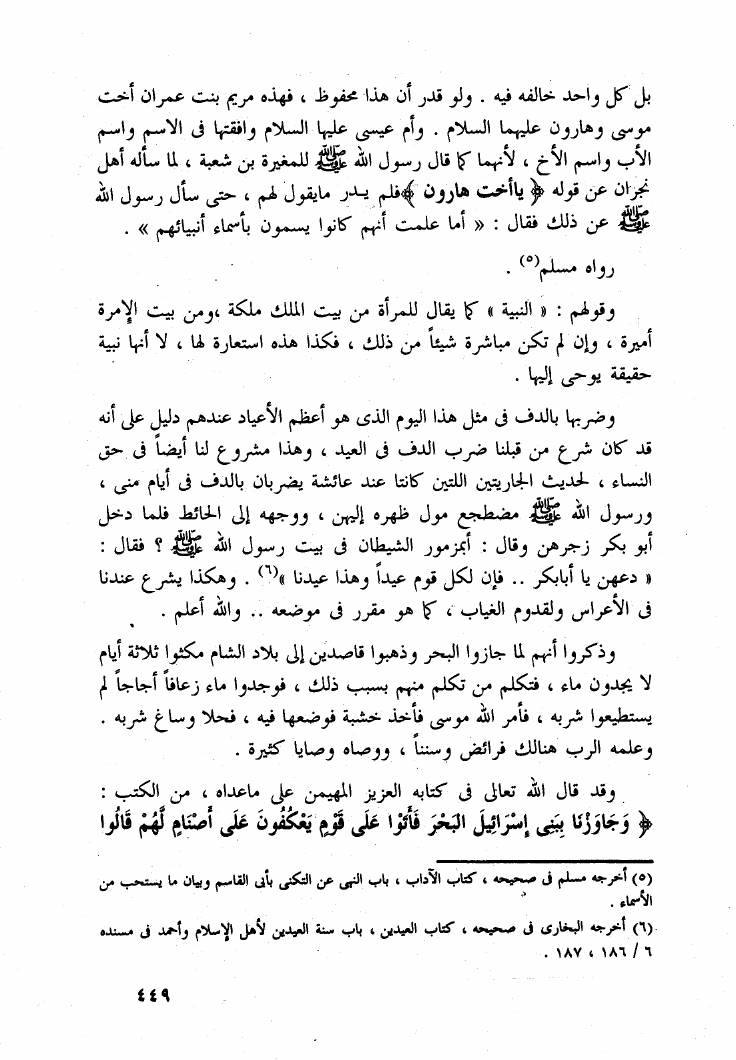 بل كل واحد خالفه فيه . ولو قدر أن هذا محفوظ ، فهذه مريم بنت عمران أخت
موسى وهارون عليهما السلام . وأم عيسى عليها السلام وافقتها فى الاسم واسم
الأب واسم الأخ ، لأنهما كما قال رسول الله ﷺ للمغيرة بن شعبة ، لما سأله أهل
نجران عن قوله ﴿ ياأخت هارون ﴾فلم يدر مايقول لهم ، حتى سأل رسول الله
ﷺ عن ذلك فقال : « أما علمت أنهم كانوا يسمون بأسماء أنبيائهم » .
رواه مسلم(٥) .
وقولهم : « النبية » كما يقال للمرأة من بيت الملك ملكة ،ومن بيت الإمرة
أميرة ، وإن لم تكن مباشرة شيئاً من ذلك ، فكذا هذه استعارة لها ، لا أنها نبية
حقيقة يوحى إليها .
وضربها بالدف فى مثل هذا اليوم الذى هو أعظم الأعياد عندهم دليل على أنه
قد كان شرع من قبلنا ضرب الدف فى العيد ، وهذا مشروع لنا أيضاً فى حق
النساء ، لحديث الجاريتين اللتين كانتا عند عائشة يضربان بالدف فى أيام منى ،
ورسول الله ﷺ مضطجع مول ظهره إليهن ، ووجهه إلى الحائط فلما دخل
أبو بكر زجرهن وقال : أبمزمور الشيطان فى بيت رسول الله ﷺ ؟ فقال :
« دعهن يا أبابكر .. فإن لكل قوم عيداً وهذا عيدنا »(٦) . وهكذا يشرع عندنا
فى الأعراس ولقدوم الغياب ، كما هو مقرر فى موضعه .. والله أعلم .
وذكروا أنهم لما جازوا البحر وذهبوا قاصدين إلى بلاد الشام مكثوا ثلاثة أيام
لا يجدون ماء ، فتكلم من تكلم منهم بسبب ذلك ، فوجدوا ماء زعافاً أجاجاً لم
يستطيعوا شربه ، فأمر الله موسى فأخذ خشبة فوضعها فيه ، فحلا وساغ شربه .
وعلمه الرب هنالك فرائض وسنناً ، ووصاه وصايا كثيرة .
وقد قال الله تعالى فى كتابه العزيز المهيمن على ماعداه ، من الكتب :
﴿ وَجَاوَزْنَا بِبَنِى إِسْرَائِيلَ البَحْرَ فَأَتَوْا عَلَى قَوْمٍ يَعْكُفُونَ عَلَى أَصْنَامٍ لَّهُمْ قَالُوا
(٥) أخرجه مسلم فى صحيحه ، كتاب الآداب ، باب النهى عن التكنى بأبى القاسم وبيان ما يستحب من
الأسماء .
(٦) أخرجه البخارى فى صحيحه ، كتاب العيدين ، باب سنة العيدين لأهل الإسلام وأحمد فى مسنده
٦ / ١٨٦ ، ١٨٧ .
٤٤٩